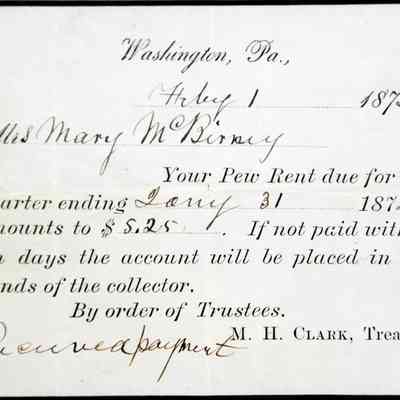 Washington, Pa.,
Feby 1 187
Mrs Mary McBirney
Your Pew Rent due for
arter ending Jany 31 187
nounts to $5.25. If not paid with
n days the account will be placed in
nds of the collector.
By order of Trustees.
M. H. Clark, Trea
Received payment